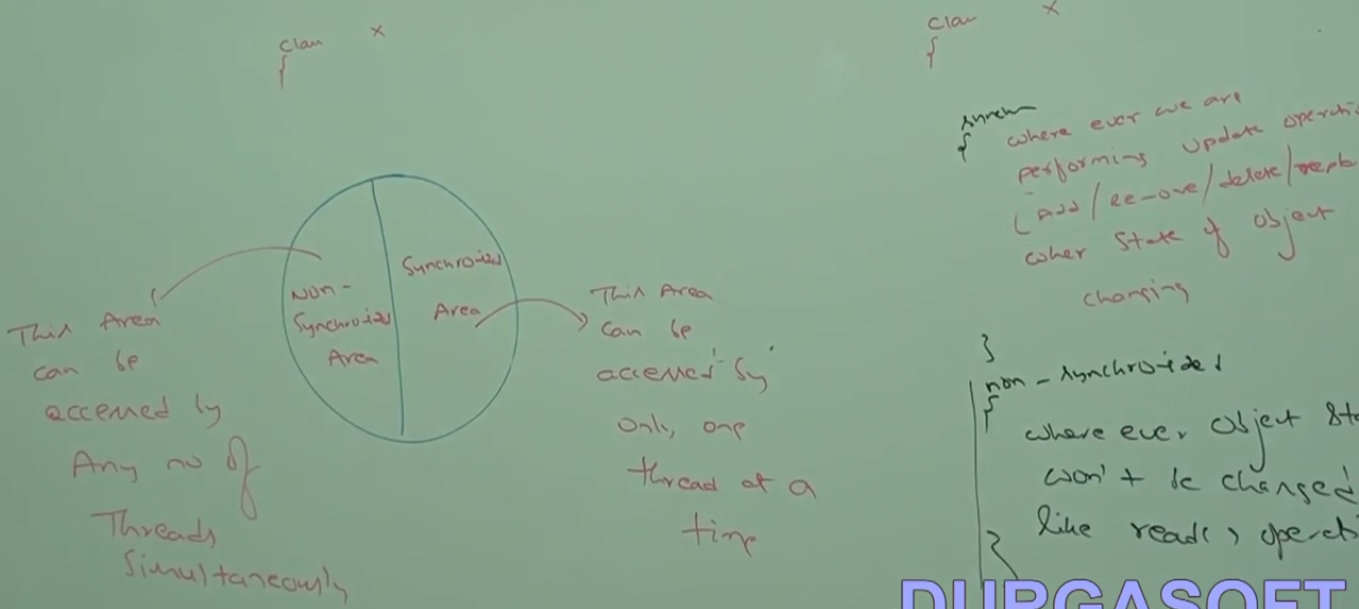 class X
{
Non-
Synchronized
Area
Synchronized
Area
This Area
can be
accessed by
Any no of
Threads
Simultaneously
This Area
can be
accessed by
only one
thread at a
time
class X
{
synch
{
where ever we are
performing update operati
(Add/Remove/delete/repla
when state of object
changing
}
non-synchronized
{
where ever object sta
won't be changed
like read() operati
}
DURGASOFT